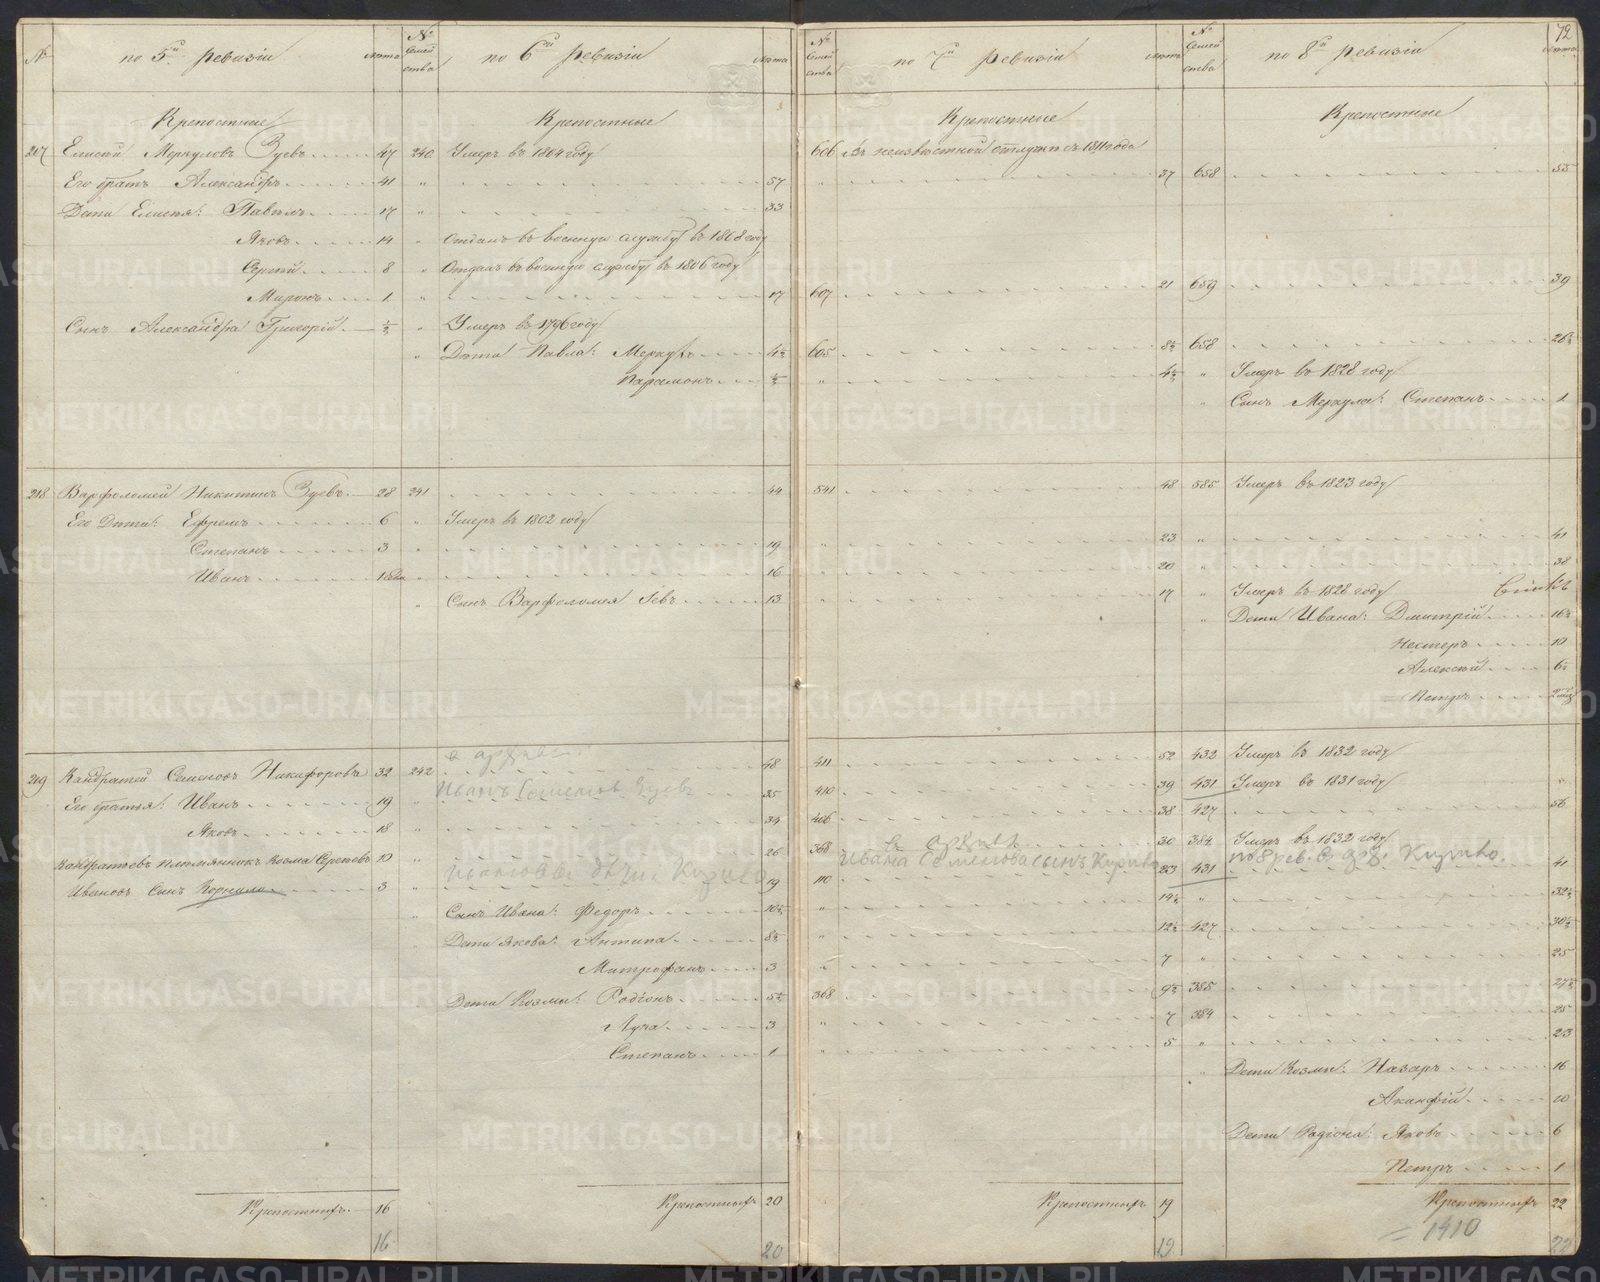 72
№ по 5й ревизіи лѣта № семейства по 6й ревизіи лѣта № семейства по 7й ревизіи лѣта № семейства по 8й ревизіи лѣта
Крепостные Крепостные Крепостные Крепостные
217 Елисей Меркуловъ Зуевъ 47 240 Умеръ въ 1804 году 606 Въ неизвѣстной отлучкѣ съ 1811 года
Его братъ Александръ 41 " 57 " 37 658 55
Дети Елисея: Павелъ 17 " 33
Яковъ 14 " Отданъ въ военную службу въ 1808 году
Сергей 8 " Отданъ въ военную службу въ 1806 году
Миронъ 1 " 17 607 21 659 39
Сынъ Александра Григорій ½ " Умеръ въ 1796 году
" Дѣти Павла: Меркулъ 4½ 605 8½ 658 26½
Парамонъ ½ " 4½ " Умеръ въ 1828 году
" Сынъ Меркула: Степанъ 1
218 Варфоломей Никитинъ Зуевъ 28 241 44 541 48 585 Умеръ въ 1823 году
Его Дѣти: Ефремъ 6 " Умеръ въ 1802 году
Степанъ 3 " 19 " 23 " 41
Иванъ 1 " 16 " 20 " 38
" Сынъ Варфоломея Левъ 13 " 17 " Умеръ въ 1828 году
" Дети Ивана: Дмитрій 16½
Нестеръ 10
Алексей 6½
Петръ
219 Кандратей Семеновъ Никифоровъ 32 242 48 411 52 432 Умеръ въ 1832 году
Иванъ Семеновъ Зуевъ
Его братья: Иванъ 19 " 35 410 39 431 Умеръ въ 1831 году
Яковъ 18 " 34 406 38 427 56
Кандратьевъ племянникъ Козма Сергеевъ 10 " 26 368 30 384 Умеръ въ 1832 году
Ивана Семенова сынъ Кирило
по 8 рев. Кирило
Ивановъ сынъ Корнило 3 19 110 23 431 41
" Сынъ Ивана: Федоръ 10½ " 19½ " 32½
Дети Якова: Антипа 8½ " 12½ 427 30½
Митрофанъ 3 " 7 " 25
Дети Козмы: Родіонъ 5½ 368 9½ 385 27½
Лука 3 " 7 384 25
Степанъ 1 " 5 " 23
" Дети Козмы: Назаръ 16
Акинфій 10
Дети Родіона: Яковъ 6
Петръ 1
Крепостныхъ 16 Крепостныхъ 20 Крепостныхъ 19 Крепостныхъ 22
= 1410
16 20 19 22
METRIKI.GASO-URAL.RU